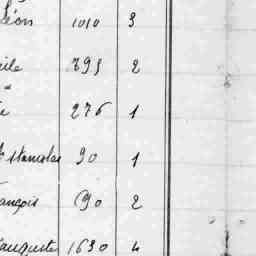 Léon 1010 3
795 2
276 1
Stanislas 90 1
ançois 690 2
auguste 1630 4